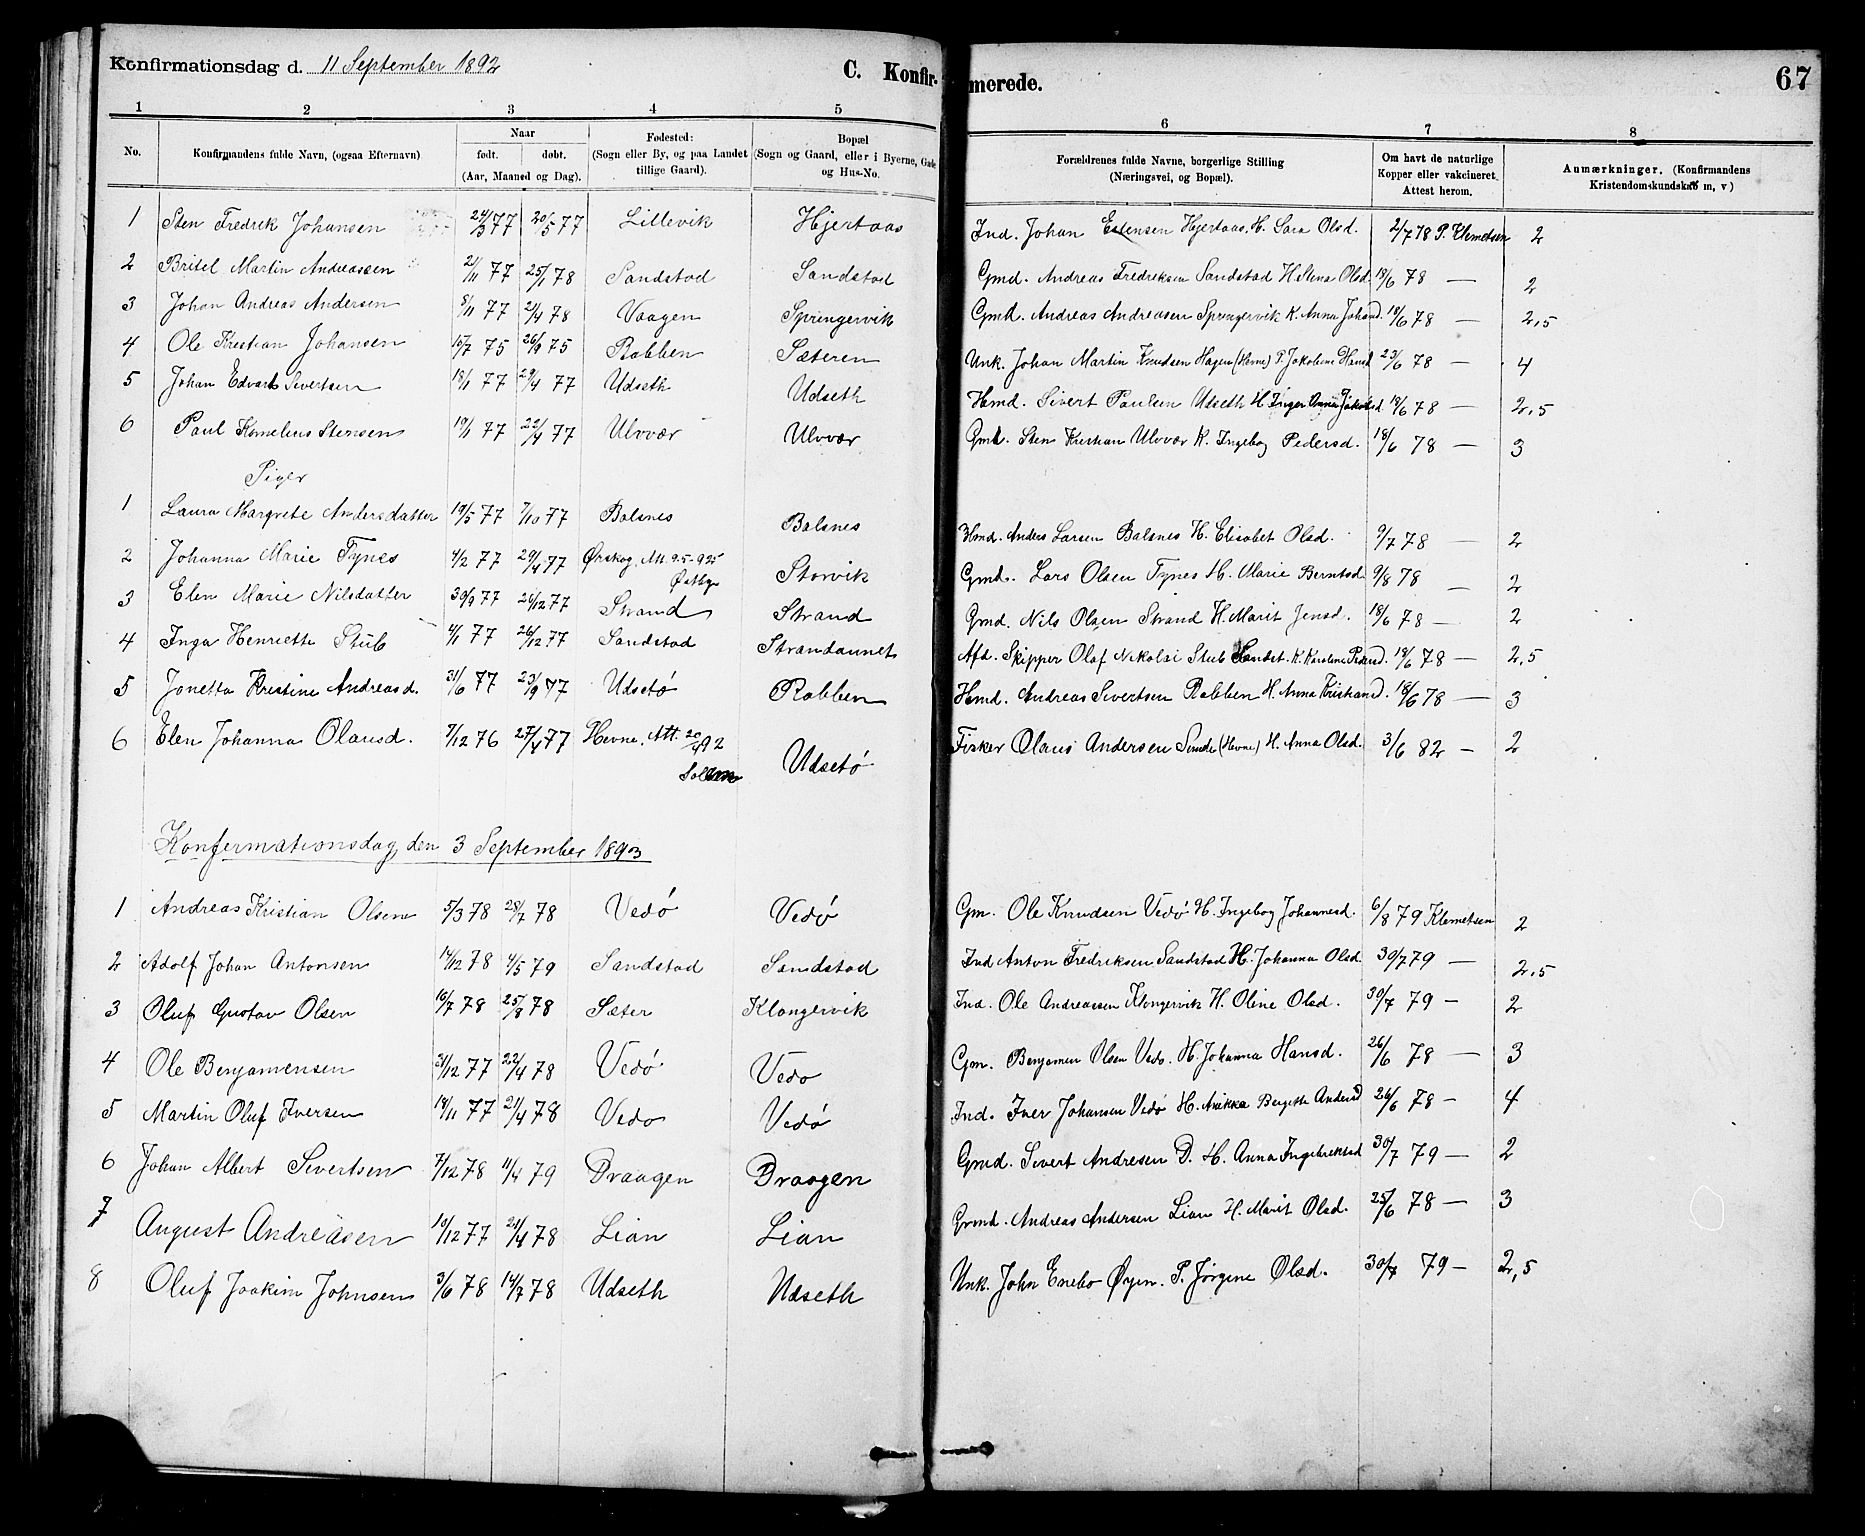 Konfirmationsdag d. 11 September 1892 C. Konfirmerede. 67
1 2 3 4 5 6 7 8
No. Konfirmandens fulde Navn, (ogsaa Efternavn) Naar født. døbt. (Aar, Maaned og Dag). Fødested: (Sogn eller By, og paa Landet tillige Gaard). Bopæl (Sogn og Gaard, eller i Byerne, Gade og Hus-No. Forældrenes fulde Navne, borgerlige Stilling (Næringsvei, og Bopæl). Om havt de naturlige Kopper eller vakcineret. Attest herom. Anmærkninger. (Konfirmandens Kristendomskundskab m, v)
1 Sten Fredrik Johansen 24/3 77 20/5 77 Lillevik Hjertaas Ind. Johan Estensen Hjertaas. H. Sara Olsd. 2/7 78 P. Klemetsen 2
2 Britel Martin Andreassen 21/11 77 25/1 78 Sandstad Sandstad Gmd. Andreas Fredriksen Sandstad H. Elena Olsd. 18/6 78 — 2
3 Johan Andreas Andersen 8/11 77 21/4 78 Vaagen Springervik Gmd. Andreas Andreasen Springervik K. Anna Johand. 18/6 78 — 2,5
4 Ole Kristian Johansen 15/7 75 26/9 75 Robben Sæteren Unk. Johan Martin Knudsen Hagen (Hevne) P. Jakobine Hansd 23/6 78 — 4
5 Johan Edvart Sivertsen 18/1 77 29/4 77 Udseth Udseth Hmd. Sivert Paulsen Udseth H. Inger Anna Jakobsd 18/6 78 — 2,5
6 Paul Kornelius Stensen 19/1 77 22/4 77 Ulvvær Ulvvær Gmd. Sten Kristian Ulvvær K. Ingebog Pedersd. 18/6 78 — 3
Piger
1 Laura Margrete Andersdatter 19/5 77 7/10 77 Balsnes Balsnes Hmd. Anders Larsen Balsnes H. Elisabet Olsd. 9/7 78 — 2
2 Johanna Marie Tynes 4/2 77 29/4 77 Ørskog, Att. 9.5-92 Østbye Storvik Gmd. Lars Olsen Tynes H. Marie Berntsd. 9/8 78 — 2
3 Elen Marie Nilsdatter 30/9 77 26/12 77 Strand Strand Gmd. Nils Olsen Strand H. Marit Jensd. 18/6 78 — 2
4 Inga Henriette Stub 4/1 77 26/12 77 Sandstad Strandaunet Afd. Skipper Olaf Nikolai Stub Sandst. K. Karoline Pedersd. 18/6 78 — 2,5
5 Jonetta Kristine Andreasd. 31/6 77 23/9 77 Udsetø Robben Hmd. Andreas Sivertsen Robben H. Anna Kristiansd. 18/6 78 — 3
6 Elen Johanna Olausd. 7/12 76 27/4 77 Hevne, Att. 20/4 92 Udsetø Fisker Olaus Andersen Sunde (Hevne) H. Anna Olsd. 3/6 82 — 2
Konfirmationsdag den 3 September 1893
1 Andreas Kristian Olsen 5/3 78 28/7 78 Vedø Vedø Gm. Ole Knudsen Vedø H. Ingebog Johannesd. 6/8 79 Klemetsen 2
2 Adolf Johan Antonsen 14/12 78 4/5 79 Sandstad Sandstad Ind Anton Fredriksen Sandstad H. Johanna Olsd. 30/7 79 — 2,5
3 Oluf Gustav Olsen 16/7 78 25/8 78 Sæter Klongervik Ind. Ole Andreassen Klongervik H. Oline Olsd. 30/7 79 — 2
4 Ole Benjamensen 31/12 77 22/4 78 Vedø Vedø Gm. Benjamen Olsen Vedø. H. Johanna Hansd. 26/6 78 — 3
5 Martin Oluf Iversen 18/11 77 21/4 78 Vedø Vedø Ind. Iver Johansen Vedø H. Anikka Bergitte Andersd 26/6 78 — 4
6 Johan Albert Sivertsen 7/12 78 11/4 79 Draagen Draagen Gmd. Sivert Andresen D. H. Anna Ingebrektsd 30/7 79 — 2
7 August Andreasen 10/12 77 21/4 78 Lian Lian Grmd. Andreas Andersen Lian H. Marit Olsd. 25/6 78 — 3
8 Oluf Joakim Johnsen 3/6 78 14/7 78 Udseth Udseth Unk. John Enebo Øyen. P. Jørgine Olsd. 30/7 79 — 2,5